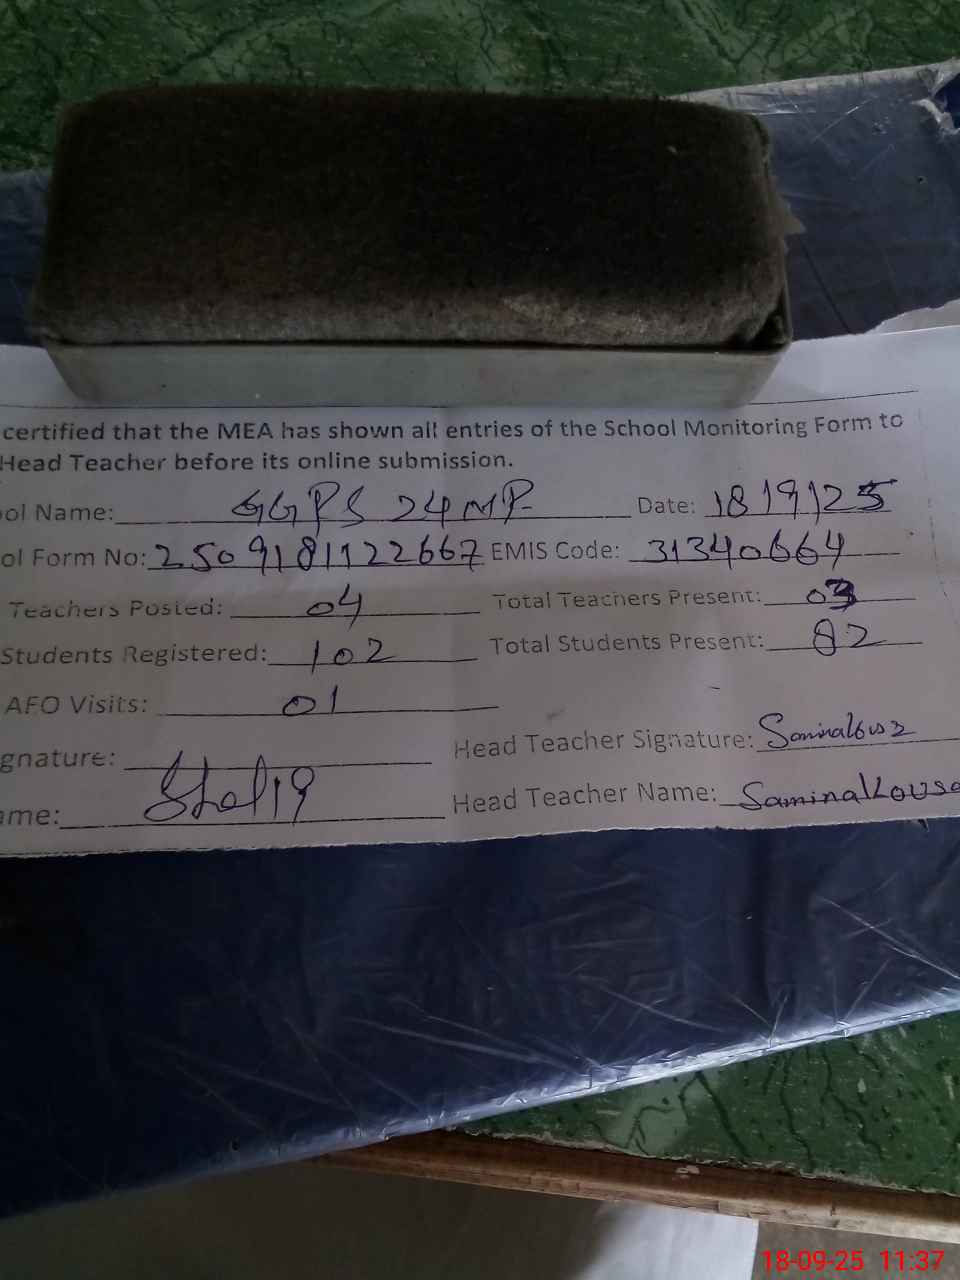 certified that the MEA has shown all entries of the School Monitoring Form to
Head Teacher before its online submission.
ool Name: GGPS 24 MP Date: 18/9/25
ol Form No: 2509181122667 EMIS Code: 31340664
Teachers Posted: 04 Total Teachers Present: 03
Students Registered: 102 Total Students Present: 82
AEO Visits: 01
gnature: Head Teacher Signature:
ame: Head Teacher Name: Saminakousa
18-09-25 11:37